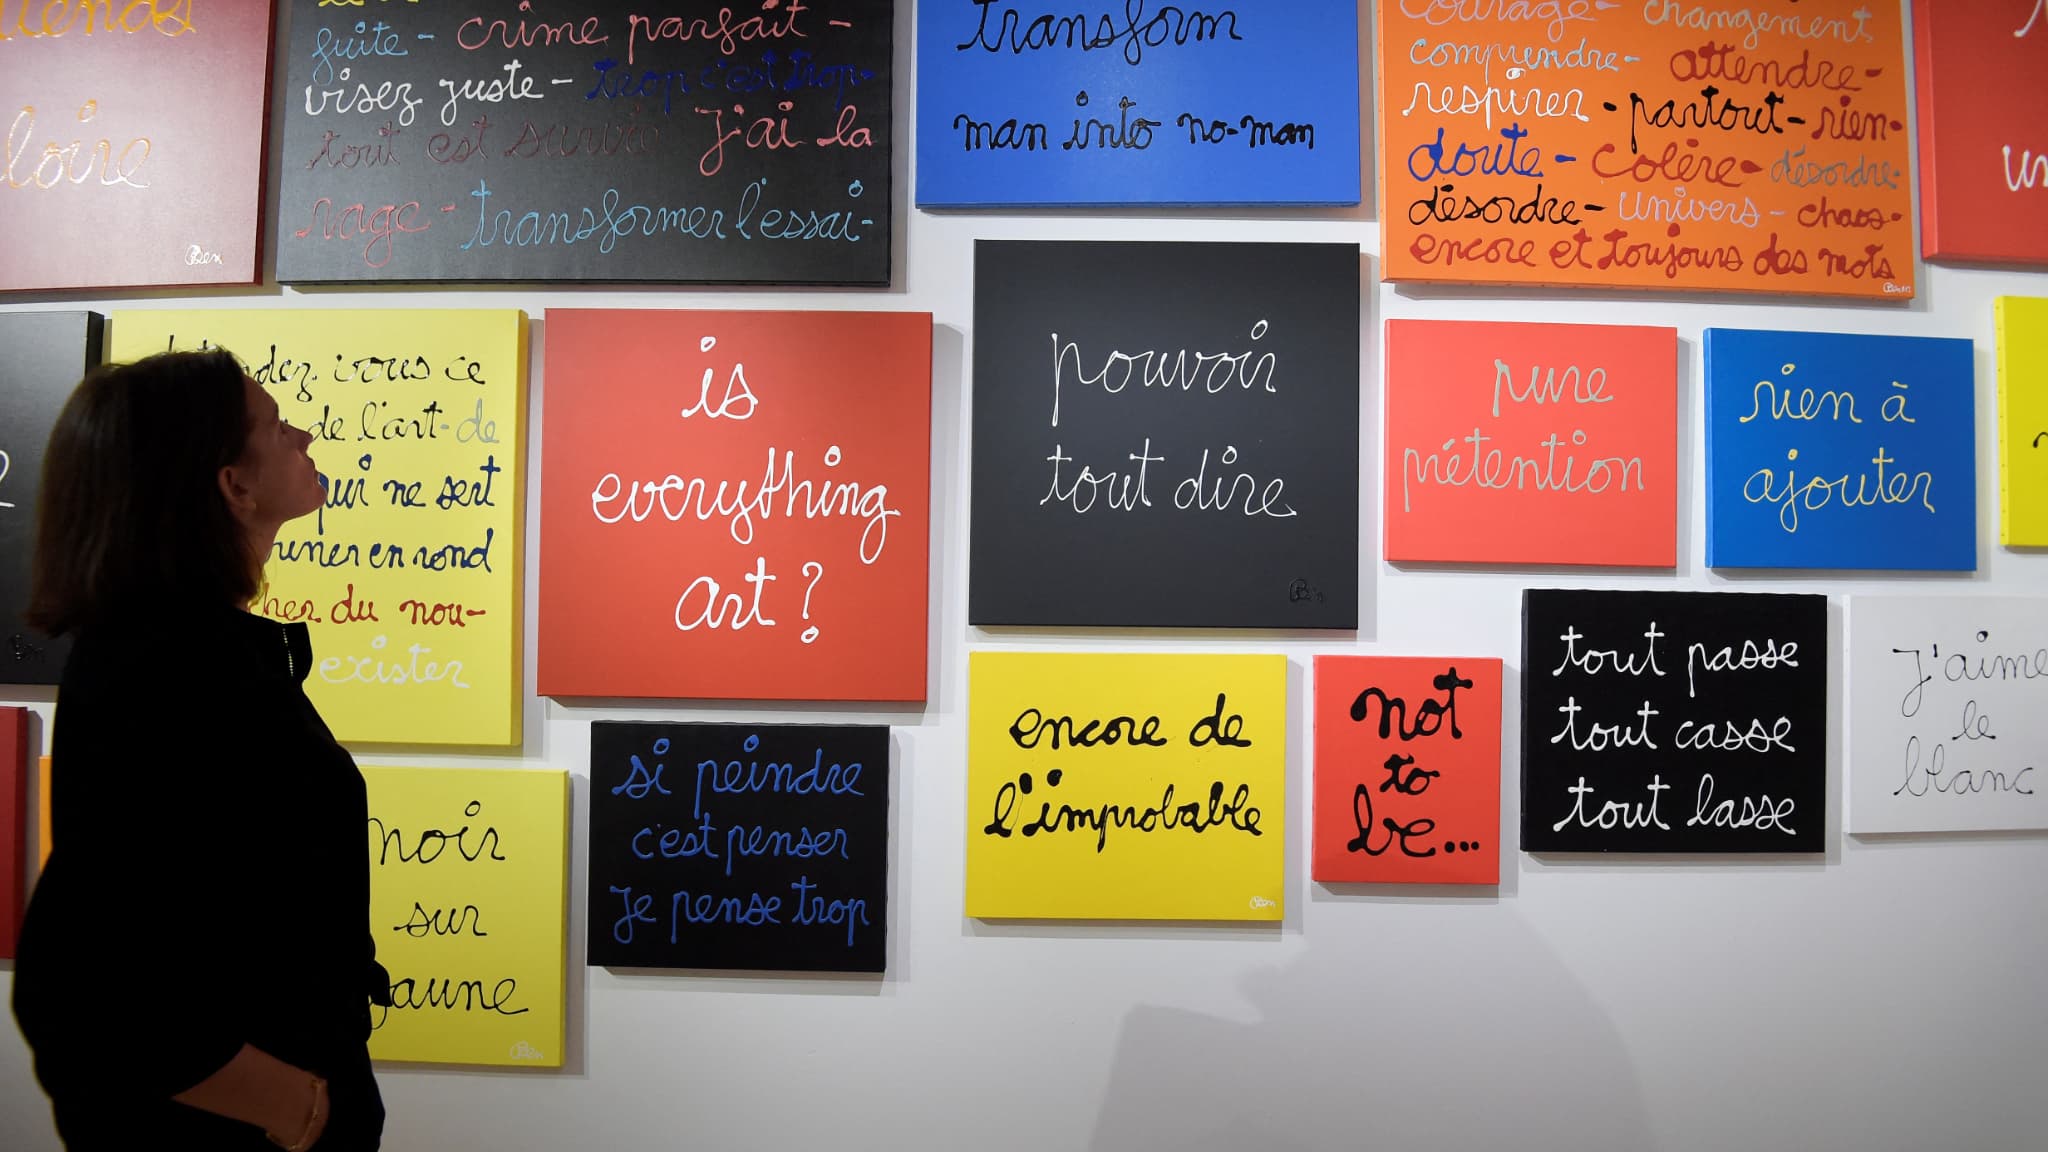 loire
Ben
fuite - crime parfait -
visez juste - trop c'est trop -
tout est survie J'ai la
rage - transformer l'essai -
transform
man into no-man
courage - changement
comprendre - attendre -
respirer - partout - rien -
doute - colère - désordre -
désordre - univers - chaos -
encore et toujours des mots
Ben
vous ce
de l'art - de
qui ne sert
en rond
du nou-
exister
is
everything
art ?
pouvoir
tout dire
Ben
pure
prétention
rien à
ajouter
noir
sur
jaune
Ben
si peindre
c'est penser
Je pense trop
encore de
l'improbable
Ben
not
to
be...
tout passe
tout casse
tout lasse
J'aime
le
blanc